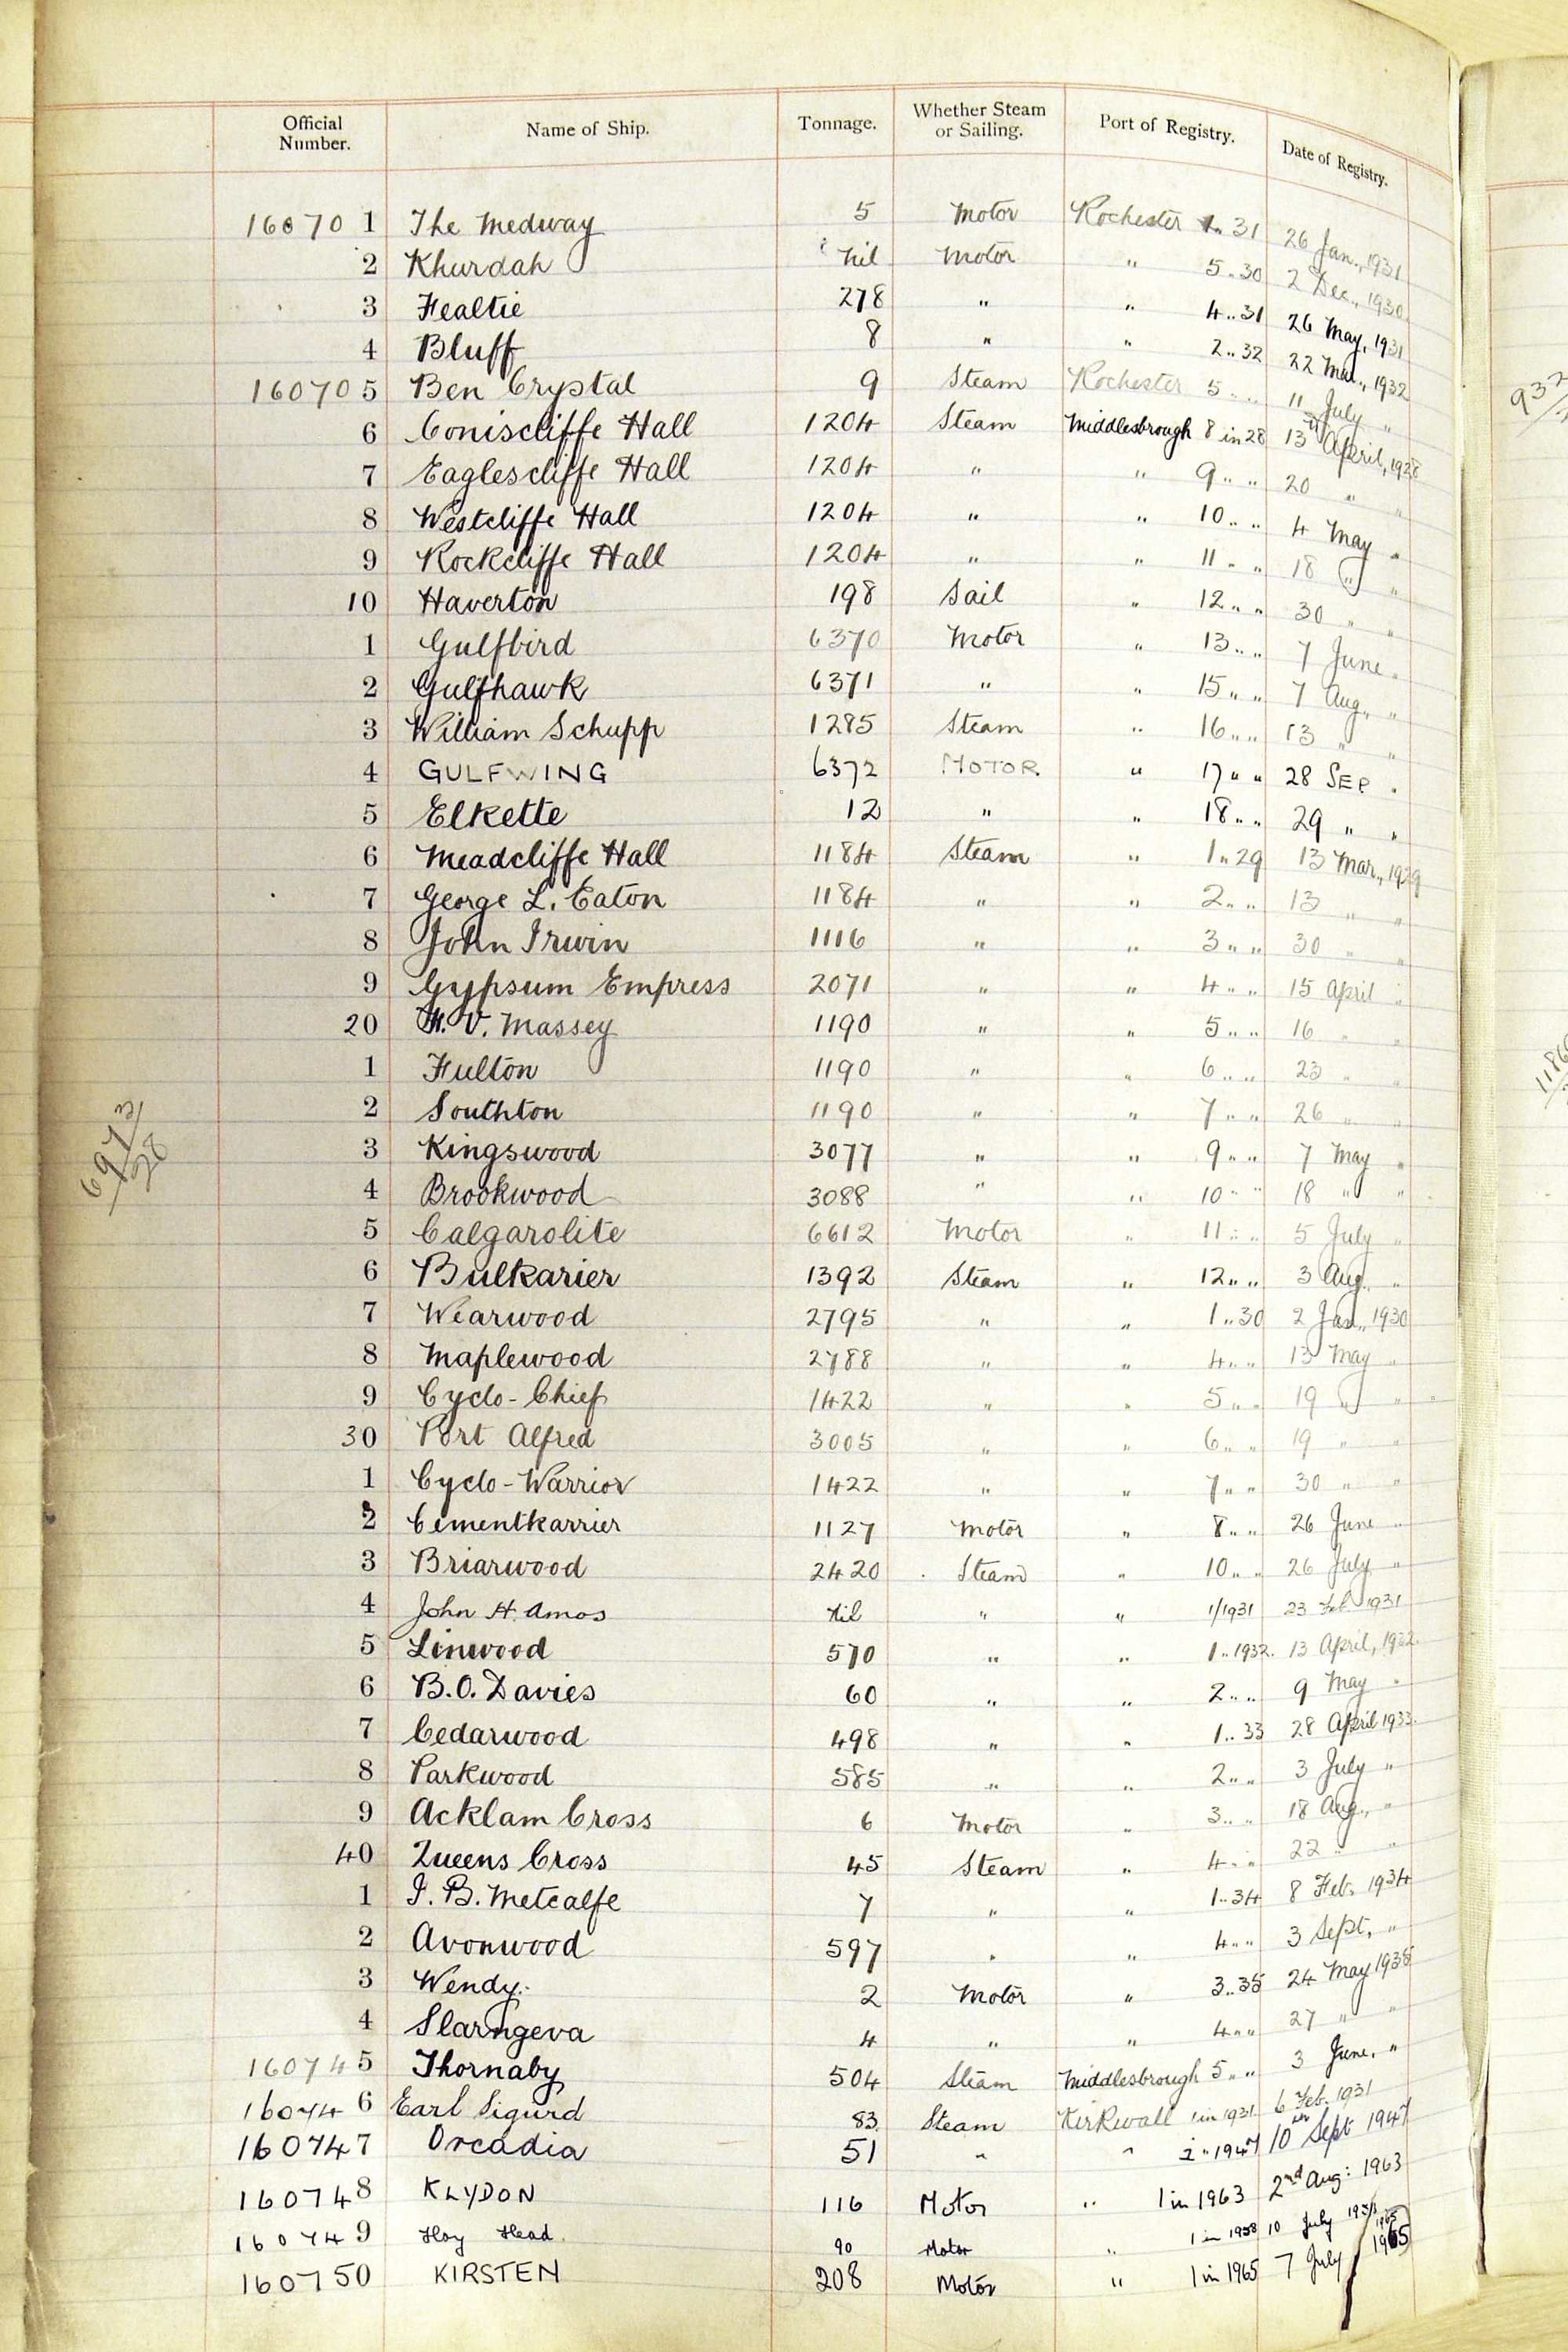 Official Number. Name of Ship. Tonnage. Whether Steam or Sailing. Port of Registry. Date of Registry.
160701 The Medway 5 Motor Rochester 1 .. 31 26 Jan., 1931
2 Khurdah Nil Motor " 5 .. 30 2 Dec., 1930
3 Fealtie 278 " " 4 .. 31 26 May, 1931
4 Bluff 8 " " 2 .. 32 22 Mar., 1932
160705 Ben Crystal 9 Steam Rochester 5 .. .. 11 July "
6 Coniscliffe Hall 1204 Steam Middlesbrough 8 in 28 13th April, 1928
7 Eaglescliffe Hall 1204 " " 9 .. .. 20 " "
8 Westcliffe Hall 1204 " " 10 .. .. 4 May "
9 Rockcliffe Hall 1204 " " 11 .. .. 18 " "
10 Haverton 198 Sail " 12 .. .. 30 " "
1 Gulfbird 6370 Motor " 13 .. .. 7 June "
2 Gulfhawk 6371 " " 15 .. .. 7 Aug., "
3 William Schupp 1285 Steam " 16 .. .. 13 " "
4 GULFWING 6372 MOTOR. " 17 " " 28 SEP. "
5 Elkette 12 " " 18 .. .. 29 " "
6 Meadcliffe Hall 1184 Steam " 1 .. 29 13 Mar., 1929
7 George L. Eaton 1184 " " 2 .. .. 13 " "
8 John Irwin 1116 " " 3 .. .. 30 " "
9 Gypsum Empress 2071 " " 4 .. .. 15 April "
20 H. V. Massey 1190 " " 5 .. .. 16 " "
1 Fulton 1190 " " 6 .. .. 23 " "
2 Southton 1190 " " 7 .. .. 26 " "
3 Kingswood 3077 " " 9 .. .. 7 May "
4 Brookwood 3088 " " 10 .. .. 18 " "
5 Calgarolite 6612 Motor " 11 .. .. 5 July "
6 Bulkarier 1392 Steam " 12 .. .. 3 Aug. "
7 Wearwood 2795 " " 1 .. 30 2 Jan., 1930
8 Maplewood 2788 " " 4 .. .. 13 May "
9 Cyclo-Chief 1422 " " 5 .. .. 19 " "
30 Port Alfred 3005 " " 6 .. .. 19 " "
1 Cyclo-Warrior 1422 " " 7 .. .. 30 " "
2 Cementkarrier 1127 Motor " 8 .. .. 26 June "
3 Briarwood 2420 Steam " 10 .. .. 26 July "
4 John H. Amos Nil " " 1/1931 23 Feb. 1931
5 Linwood 570 " " 1 .. 1932. 13 April, 1932.
6 B.O. Davies 60 " " 2 .. .. 9 May "
7 Cedarwood 498 " " 1 .. 33 28 April 1933.
8 Parkwood 585 " " 2 .. .. 3 July "
9 Acklam Cross 6 Motor " 3 .. .. 18 Aug., "
40 Queens Cross 45 Steam " 4 .. .. 22 " "
1 I. B. Metcalfe 7 " " 1 .. 34 8 Feb. 1934
2 Avonwood 597 " " 4 .. .. 3 Sept, "
3 Wendy. 2 Motor " 3 .. 35 24 May 1935
4 Slarngeva 4 " " 4 .. .. 27 " "
160745 Thornaby 504 Steam Middlesbrough 5 .. .. 3 June, "
160746 Earl Sigurd 83. Steam Kirkwall 1 in 1931 6 Feb. 1931
160747 Orcadia 51 " " 2 " 1947 10th Sept 1947
160748 KLYDON 116 Motor " 1 in 1963 2nd Aug: 1963
160749 Hoy Head. 90 Motor " 1 in 1958 10 July 1958
160750 KIRSTEN 208 Motor " 1 in 1965 7 July 1965
6973/28
932
1186